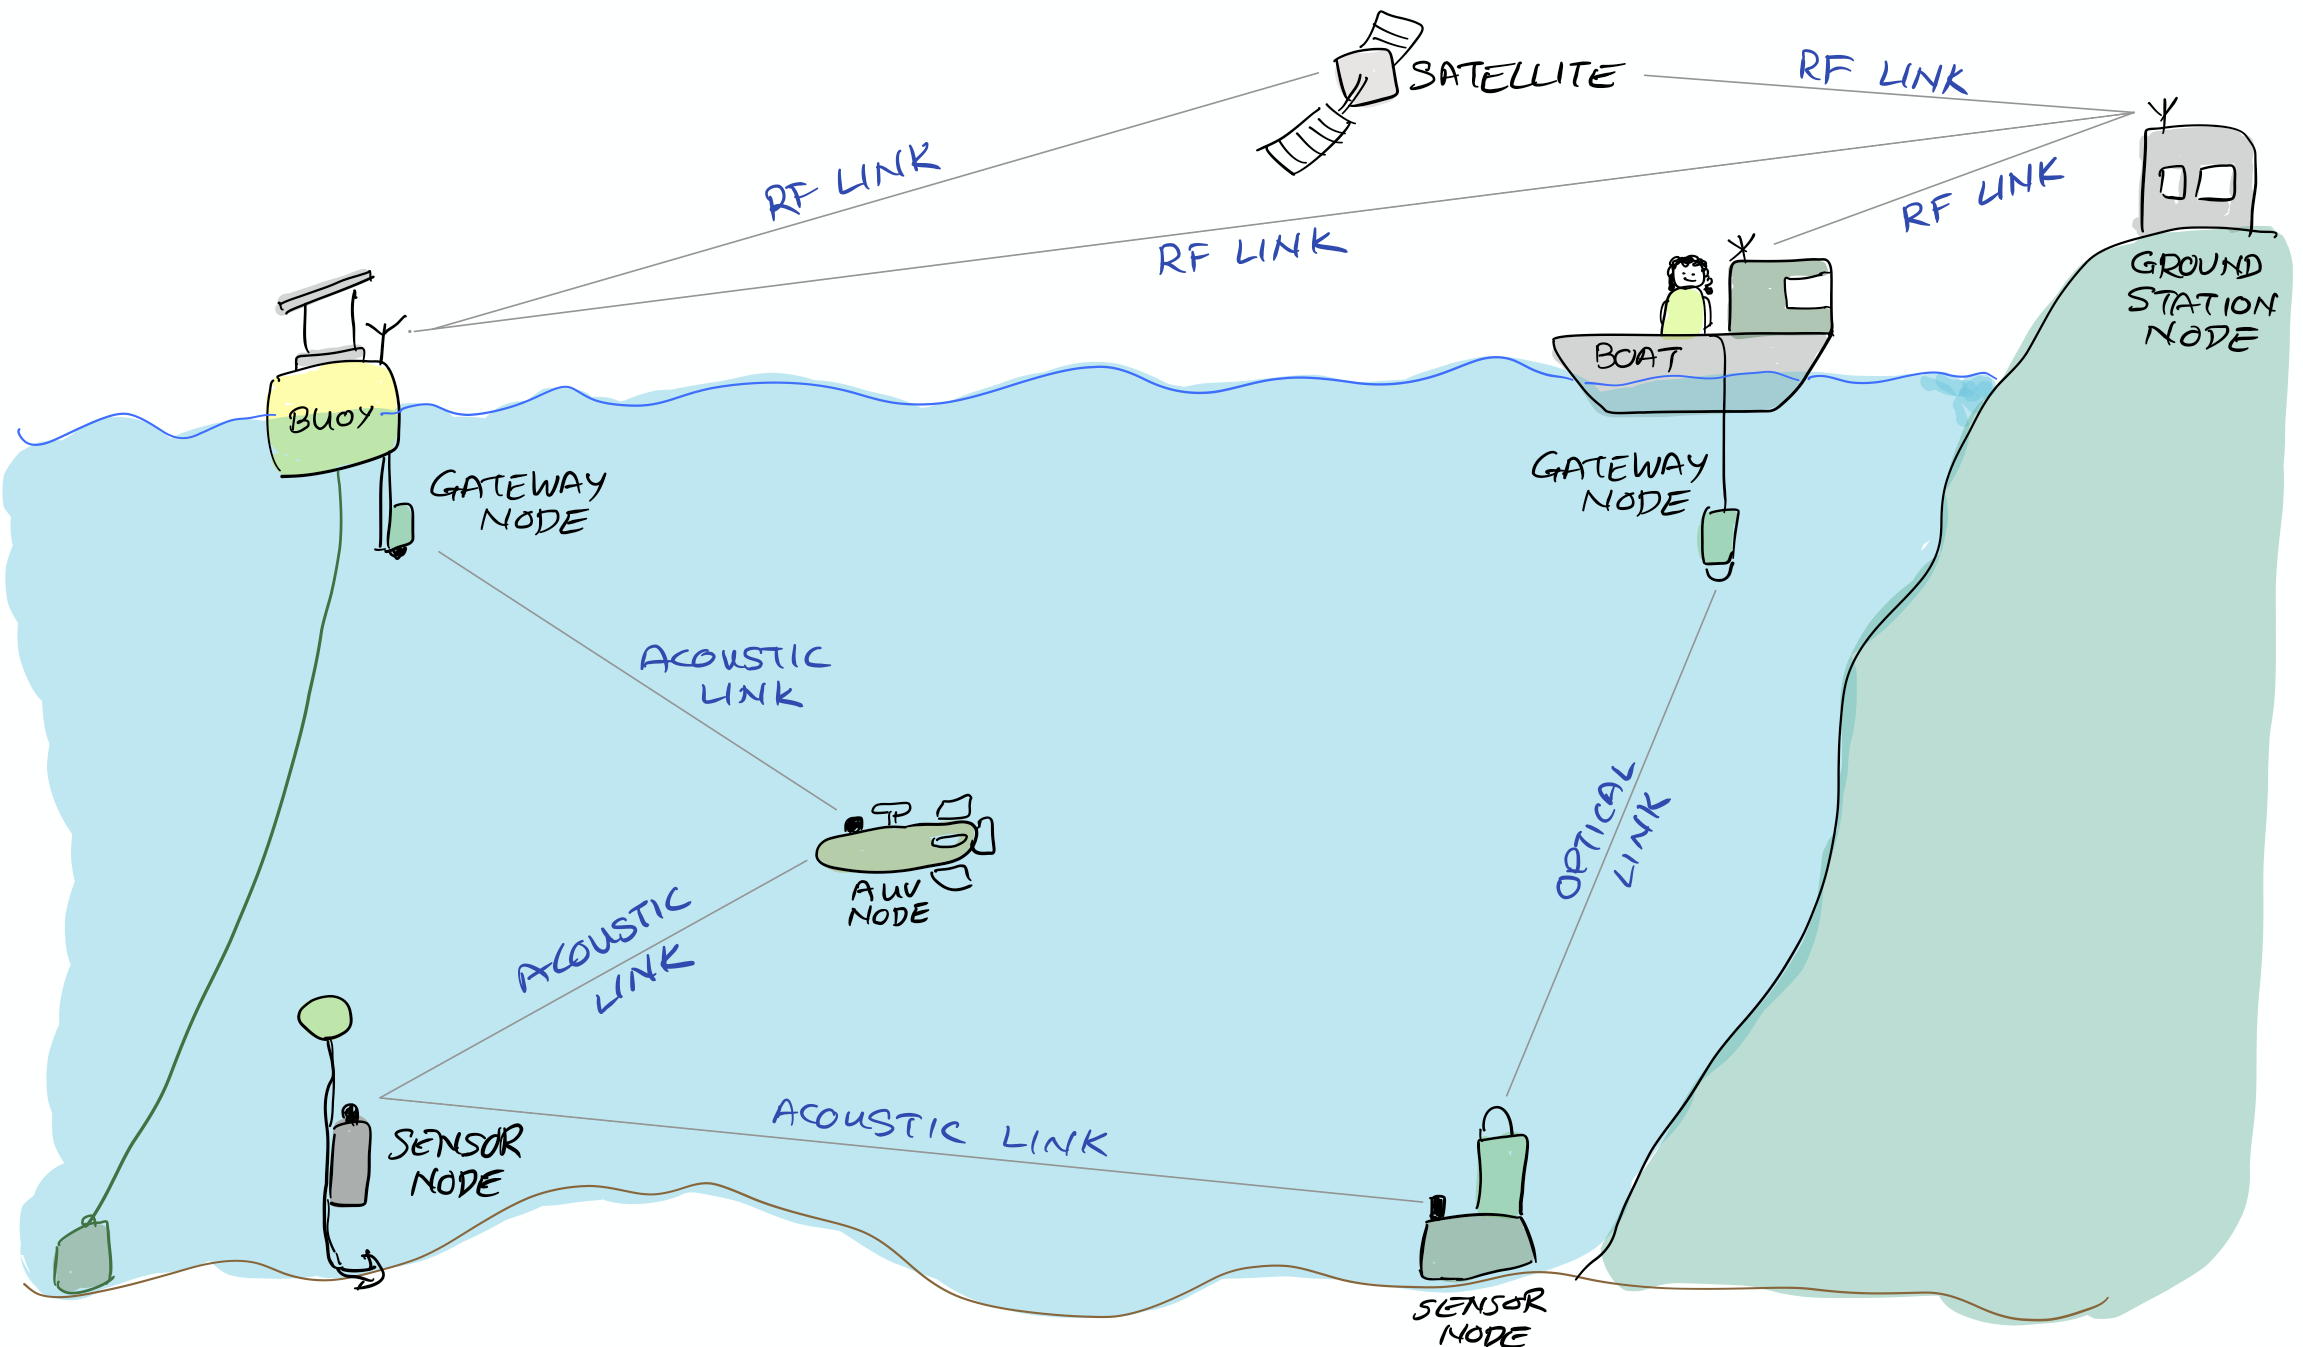 SATELLITE
RF LINK
RF LINK
RF LINK
RF LINK
GROUND
STATION
NODE
BOAT
BUOY
GATEWAY
NODE
GATEWAY
NODE
ACOUSTIC
LINK
OPTICAL
LINK
AUV
NODE
ACOUSTIC
LINK
ACOUSTIC LINK
SENSOR
NODE
SENSOR
NODE